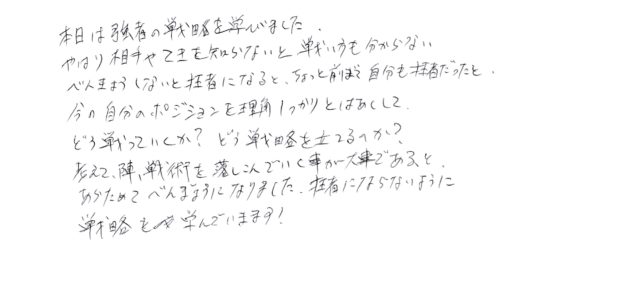 本日は強者の戦略を学びました.
やはり相手やてきを知らないと戦い方も分からない
べんきょうしないと拄者になると、ちょっと前まで自分も拄者だったと.
今の自分のポジションを理角しっかりとはあくして.
どう戦っていくか? どう戦略を立てるのか?
考えて、陣、戦術を落しこんでいく事が大事である、と.
あらためてべんきょうになりました. 拄者にならないように
戦略を学んでいます!